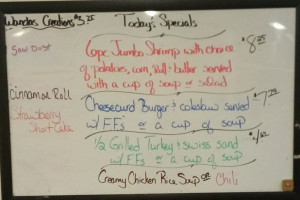 Wandas Creations $3.25
Today's Specials
Saw Dust
Cinnamon Roll
Strawberry
Short Cake
Jumbo Shrimp with choice
of potatoes, corn, Roll & butter served
with a cup of soup or salad
Cheesecurd Burger & coleslaw served
w/FF's or a cup of soup
1/2 Grilled Turkey & swiss sand
w/FF's or a cup of soup
Creamy Chicken Rice Soup or Chili